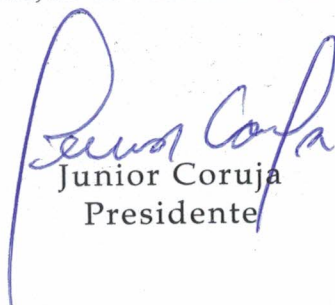 Junior Coruja
Presidente